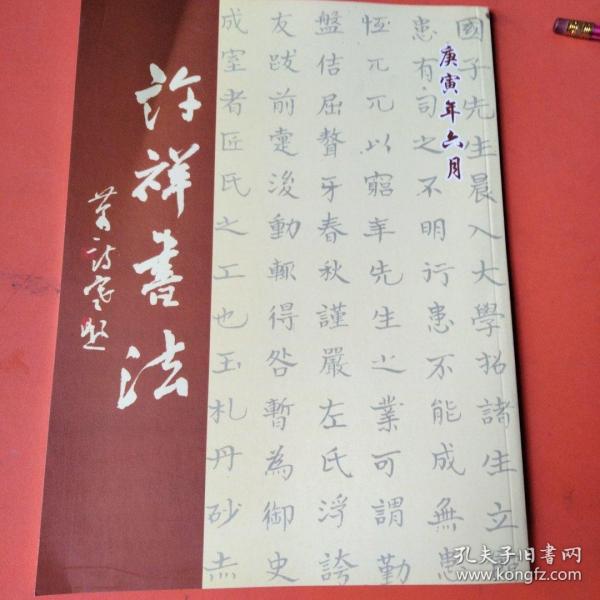 庚寅年六月
國子先生晨入大學招諸生立
患有司之不明行患不能成無患
恆兀兀以窮年先生之業可謂勤
盤佶屈聱牙春秋謹嚴左氏浮誇
友跋前疐後動輒得咎暫為御史
成室者匠氏之工也玉札丹砂赤
许祥書法
孔夫子旧书网
www.kongfz.com